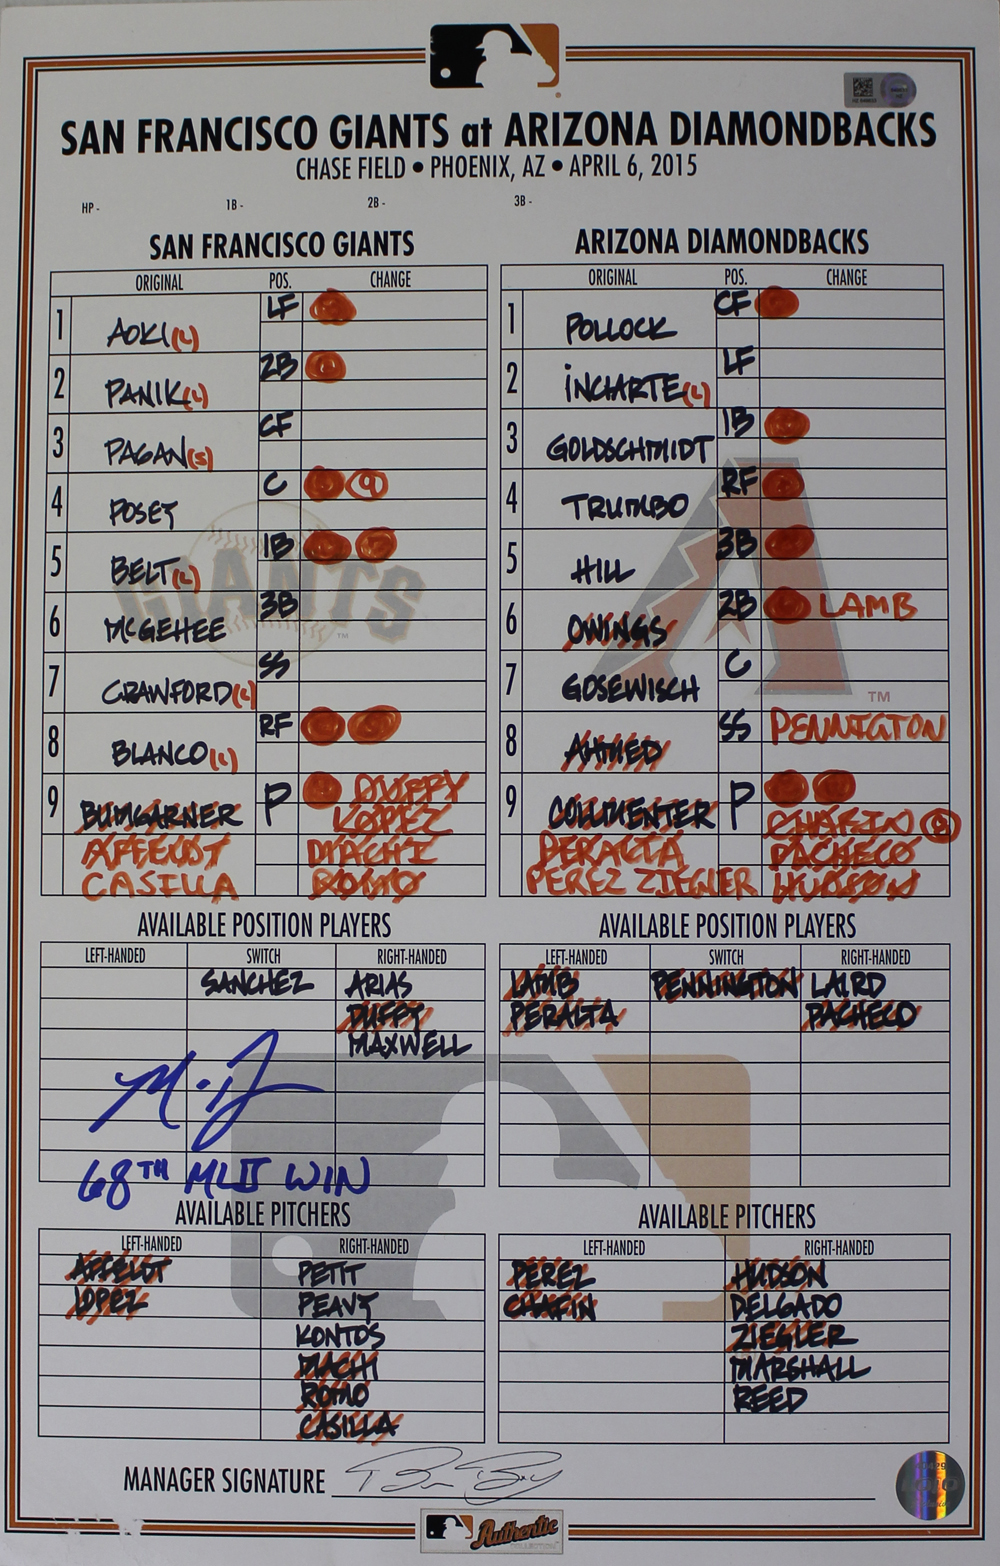 SAN FRANCISCO GIANTS at ARIZONA DIAMONDBACKS
CHASE FIELD • PHOENIX, AZ • APRIL 6, 2015
HP - 1B - 2B - 3B -
SAN FRANCISCO GIANTS
ORIGINAL POS. CHANGE
1 AOKI(L) LF
2 PANIK(L) 2B
3 PAGAN(S) CF
4 POSEY C 9
5 BELT(L) 1B
6 McGEHEE 3B
7 CRAWFORD(L) SS
8 BLANCO(L) RF
9 BUMGARNER P DUFFY
LOPEZ
AFFELDT MACHI
CASILLA ROMO
ARIZONA DIAMONDBACKS
ORIGINAL POS. CHANGE
1 POLLOCK CF
2 INCIARTE(L) LF
3 GOLDSCHMIDT 1B
4 TRUMBO RF
5 HILL 3B
6 OWINGS 2B LAMB
7 GOSEWISCH C
8 AHMED SS PENNINGTON
9 COLLMENTER P
CHAFIN
PERALTA PACHECO
PEREZ ZIEGLER HUDSON
GIANTS
TM
A
TM
AVAILABLE POSITION PLAYERS
LEFT-HANDED SWITCH RIGHT-HANDED
SANCHEZ ARIAS
DUFFY
MAXWELL
68TH MLB WIN
AVAILABLE POSITION PLAYERS
LEFT-HANDED SWITCH RIGHT-HANDED
LAMB PENNINGTON LAIRD
PERALTA PACHECO
AVAILABLE PITCHERS
LEFT-HANDED RIGHT-HANDED
AFFELDT PETIT
LOPEZ PEAVY
KONTOS
MACHI
ROMO
CASILLA
AVAILABLE PITCHERS
LEFT-HANDED RIGHT-HANDED
PEREZ HUDSON
CHAFIN DELGADO
ZIEGLER
MARSHALL
REED
MANAGER SIGNATURE
Authentic
COLLECTION